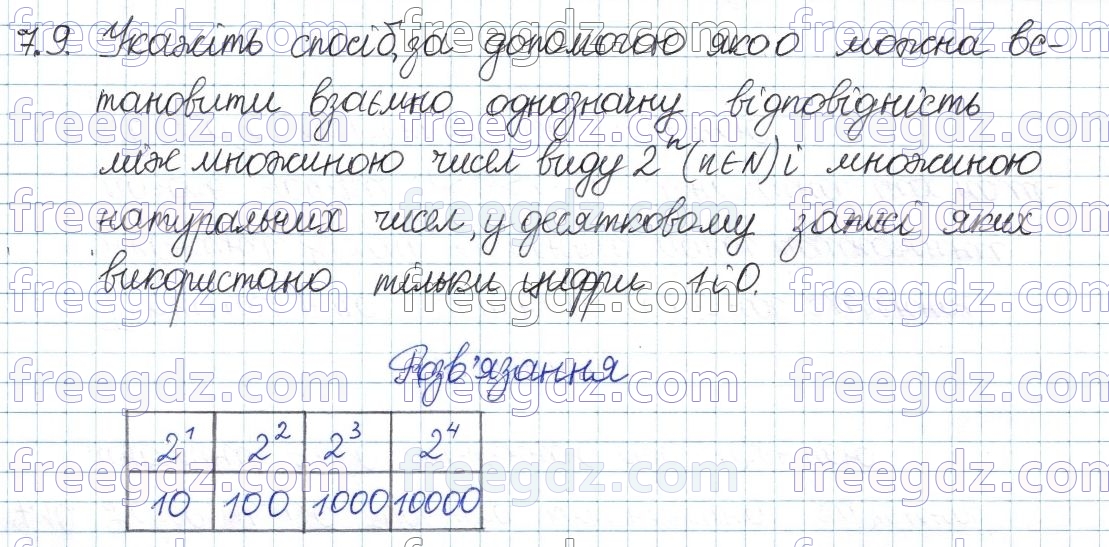 7.9. Укажіть спосіб, за допомогою якоо можна вс-
тановити взаємно однозначну відповідність
між множиною чисел виду 2ⁿ (n∈N) і множиною
натуральних чисел, у десятковому записі яких
використано тільки цифри 1 і 0.
Розв'язання
2¹ 2² 2³ 2⁴
10 100 1000 10000
freegdz.com